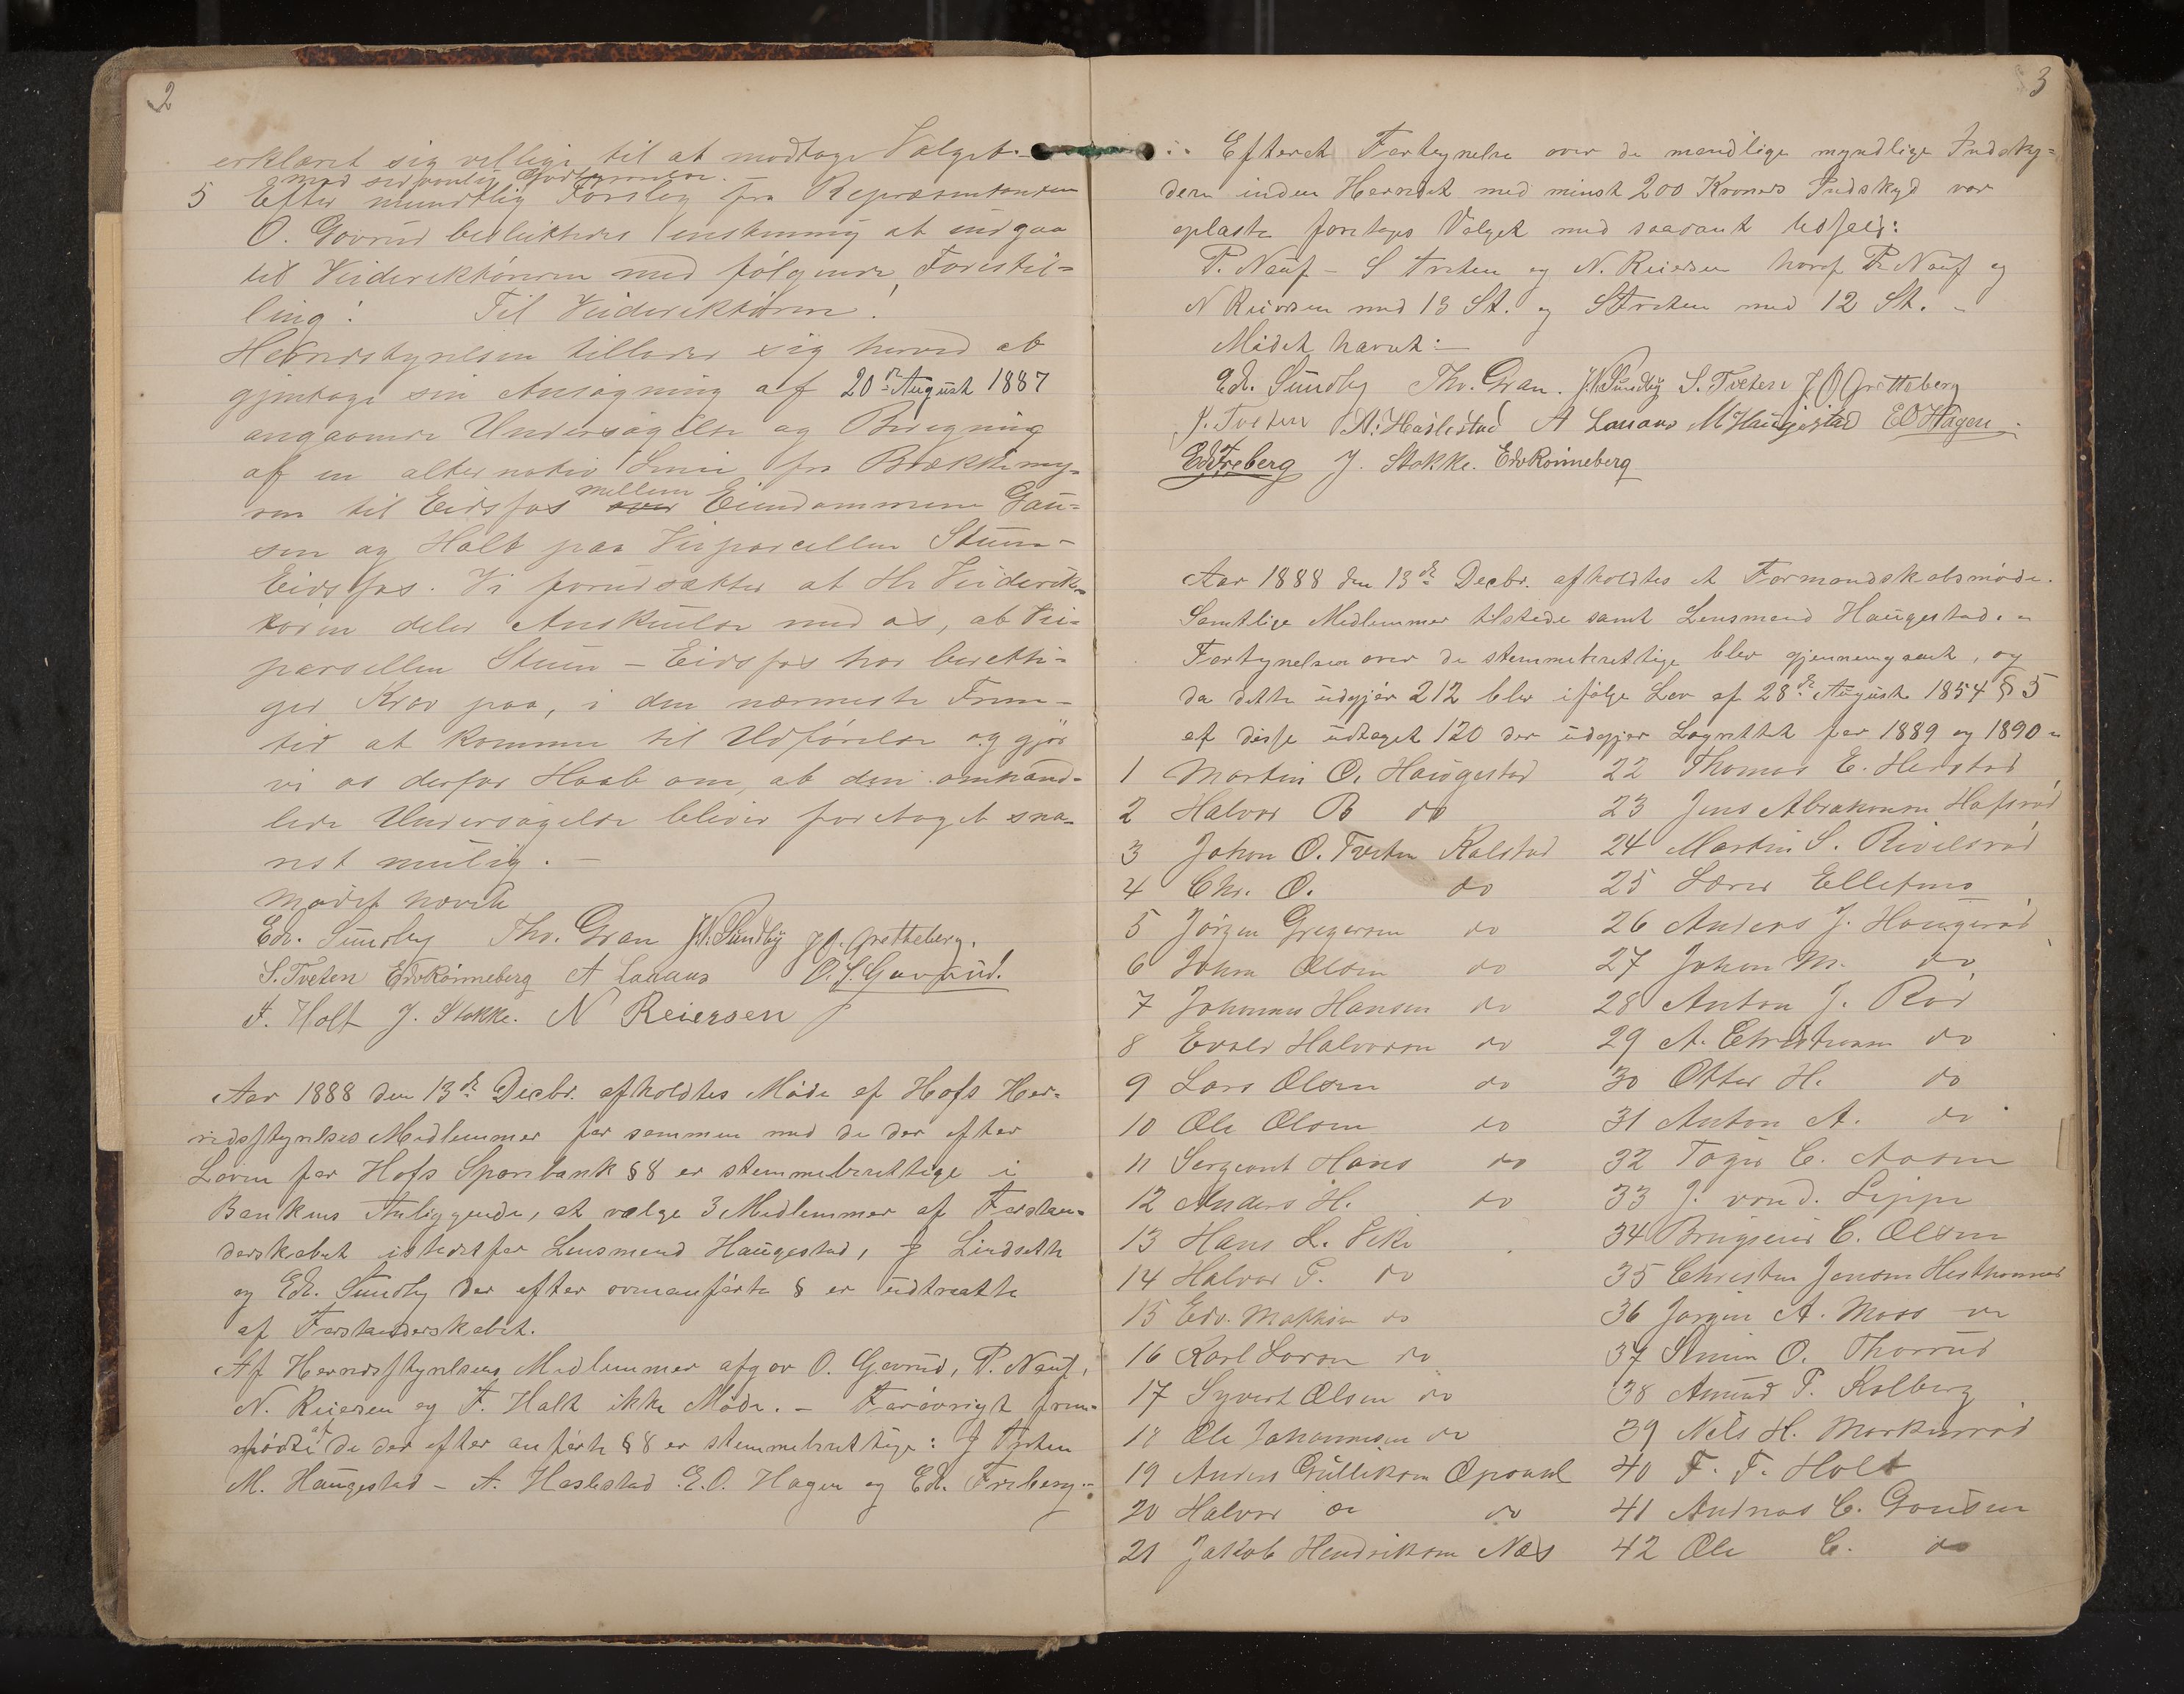 2
erklæret sig villige til at modtage Valget. –
med sedvanlig Godtgjørelse.
5 Efter mundtlig Forslag fra Repræsentanten
O. Gavrud besluttedes enstemmig at indgaa
til Veidirektøren med følgende Forestil-
ling: Til Veidirektøren!
Herredstyrelsen tillader sig herved at
gjentage sin Ansøgning af 20de August 1887
angaaende Undersøgelse og Beregning
af en alternativ Linie fra Brækkemy-
ren til Eidsfos mellem over Eiendommene Gau-
sen og Holt paa Veiparcellen Steen –
Eidsfos. Vi forudsætter at Hr Veidirek-
tøren deler Anskuelse med os, at Vei-
parsellen Steen – Eidsfos har beretti-
get Krav paa, i den nærmeste Frem-
tid at komme til Udførelse og gjør
vi os derfor Haab om, at den omhand-
lede Undersøgelse bliver foretaget sna-
rest mulig. –
Mødet hævet
Edv. Sundby Thv. Gran J.N. Sundby J.O. Grøtteberg.
S. Tveten Edv Rønneberg A Lanans O. S. Gavrud.
F. Holt J. Stokke. N Reiersen
Aar 1888 den 13de Decbr. afholdtes Møde af Hofs Her-
redsstyrelses Medlemmer før sammen med de der efter
Loven for Hofs Sparebank §8 er stemmeberettige i
Bankens Anliggende, at vælge 3 Medlemmer af Forstan-
derskabet istedetfor Lensmand Haugestad, J Lindseth
og Edv. Sundby der efter ovenanførte § er udtraadte
af Forstanderskabet.
Af Herredsstyrelsens Medlemmer afgav O. Gavrud, P. Nauf,
N. Reiersen og F. Holt ikke Møde. – Forøvrigt frem-
mødte af de der efter anførte §8 er stemmeberettige: J Tveten
M. Haugestad – A. Haslestad E.O. Hagen og Edv. Freberg –
3
Efteret Fortegnelse over de mandlige myndlige Indsky-
dere inden Herredet med minst 200 Kroners Indskyd var
oplæste foretages Valget med saadant Udfald:
P. Nauf – S Tveten og N. Reiersen hvoraf P. Nauf og
N Reiersen med 13 St. og S Tveten med 12 St. –
Mødet hævet: –
Edv. Sundby Thv. Gran. J.N. Sundby S. Tveten J O Grøtteberg
J. Tveten A. Haslestad A Lanans M Haugestad E O Hagen
Edv Freberg J. Stokke. Edv Rønneberg
Aar 1888 den 13de Decbr. afholdtes et Formandskabsmøde.
Samtlige Medlemmer tilstede samt Lensmand Haugestad. –
Fortegnelsen over de stemmeberettige blev gjennemgaaet, og
da dette udgjør 212 blev ifølge Lov af 28de August 1854 § 5
af disse udtaget 120 der udgjør Lagrettet for 1889 og 1890 –
1 Martin O. Haugestad
2 Halvor B do
3 Johan O. Tveten Kalstad
4 Chr. O. do
5 Jørgen Gregersen do
6 Johan Olsen do
7 Johannes Hansen do
8 Evald Halvorsen do
9 Lars Olsen do
10 Ole Olsen do
11 Sergeant Hans do
12 Anders H. do
13 Hans L. Vike
14 Halvor P. do
15 Edv. Mathisen do
16 Karl Larsen do
17 Syvert Olsen do
18 Ole Johannesen do
19 Anders Gulliksen Opsahl
20 Halvor do do
21 Jakob Hendriksen Næs
22 Thomas E. Herstad
23 Jens Abrahamsen Hafsrød
24 Martin S. Rivelsrød
25 Lærer Ellefsen
26 Anders J. Haugerød
27 Johan M. do
28 Anton J. Rød
29 A. Christiansen do
30 Otter H. do
31 Anton A. do
32 Tøger C. Aasen
33 J. von d. Lippe
34 Brugseier C. Olsen
35 Christen Jensen Hesthammer
36 Jørgen A. Moss do
37 Simen O. Thorrud
38 Amund P. Kolberg
39 Nels H. Markerrød
40 F. F. Holt
41 Andreas C. Gausen
42 Ole C. do